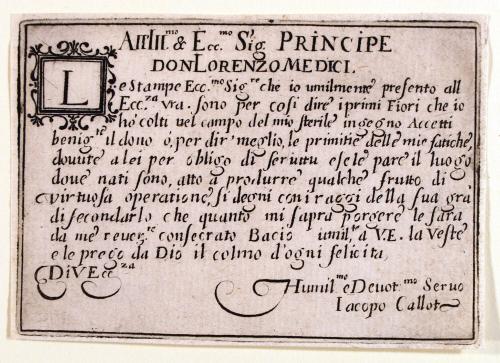 All'Ill.mo & Ecc.mo Sig. PRINCIPE
DON LORENZO MEDICI.
Le Stampe Ecc.mo Sig.re che io umilmente presento all
Ecc.za Vra. sono per cosi dire i primi Fiori che io
hò colti nel campo del mio sterile ingegno Accetti
benig.te il dono ò, per dir' meglio, le primitie delle mie fatiche,
dovute a lei per obligo di seruitu e se le pare il luogo
doue nati sono, atto a produrre qualche frutto di
virtuosa operatione, si degni con i raggi della sua grà
di fecondarlo che quanto mi saprà porgere le sarà
da me reuer.te consecrato Bacio umil.te a V.E. la Veste
e le prego da Dio il colmo d'ogni felicita,
Di V Ecc.za
Humil.mo e Deuot.mo Seruo
Iacopo Callot